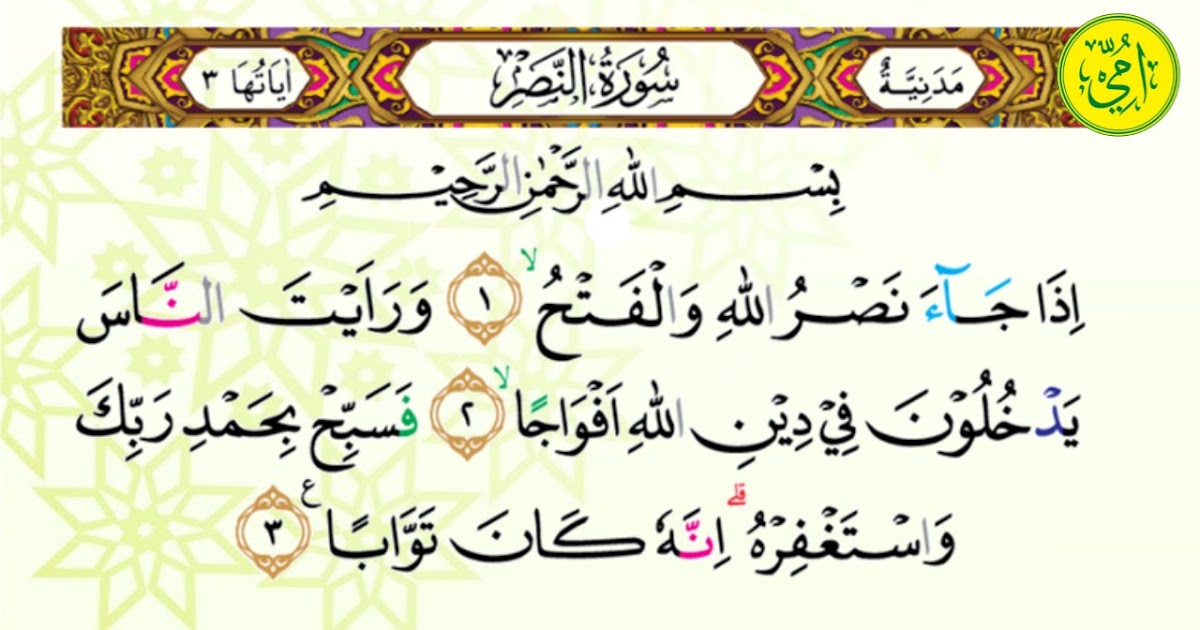 مَدَنِيَّةٌ سُوْرَةُ النَّصْرِ اٰيَاتُهَا ٣
اُمِّيْ
بِسْمِ اللهِ الرَّحْمٰنِ الرَّحِيْمِ
اِذَا جَآءَ نَصْرُ اللهِ وَالْفَتْحُ ۙ ١ وَرَاَيْتَ النَّاسَ
يَدْخُلُوْنَ فِيْ دِيْنِ اللهِ اَفْوَاجًا ۙ ٢ فَسَبِّحْ بِحَمْدِ رَبِّكَ
وَاسْتَغْفِرْهُ ۗ اِنَّهٗ كَانَ تَوَّابًا ع ٣